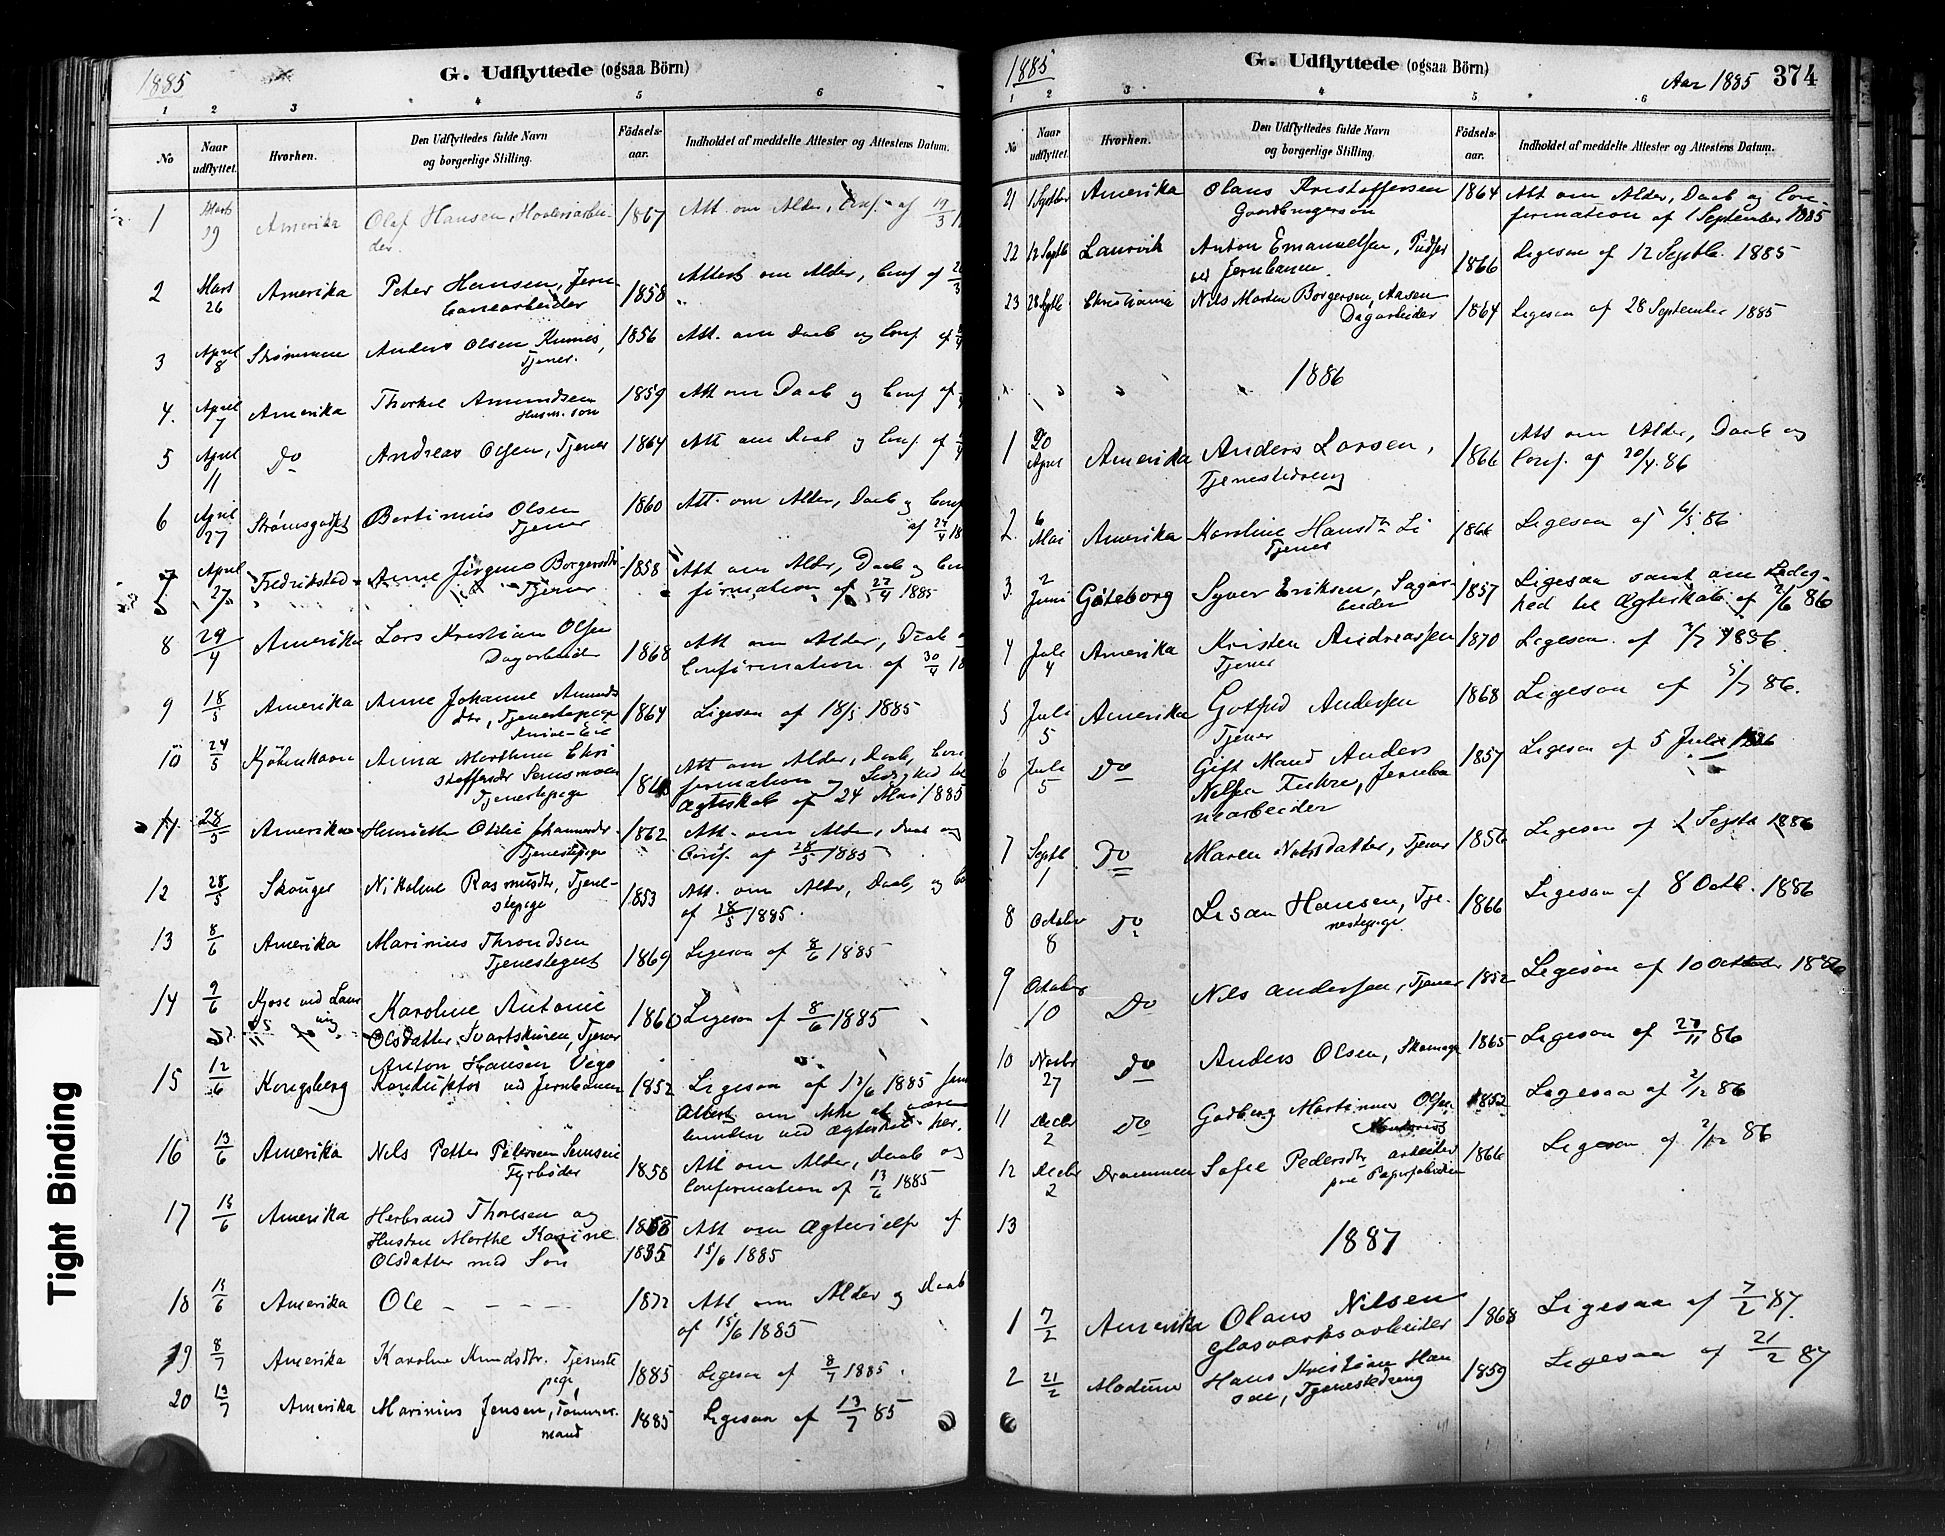 1885
G. Udflyttede (ogsaa Börn)
1 2 3 4 5 6
No
Naar udflyttet.
Hvorhen.
Den Udflyttedes fulde Navn og borgerlige Stilling.
Födsels-aar.
Indholdet af meddelte Attester og Attestens Datum.
1 Marts 19 Amerika Olaf Hansen, 1867 Att. om Alder, Conf. af 19/3
der.
2 Mart 26 Amerika Peter Hansen, Jern 1858 Attest om Alder, Conf af
banearbeider
3 April 8 Strømmen Anders Olsen 1856 Att. om Daab og Conf. af
Tjener.
4. April 7 Amerika Thorkel Amundsen 1859 Att om Daab og Conf af
Husm. søn
5 April 11 Do Andreas Olsen, Tjener 1864 Att om Daab og Conf. af
6 April 27 Strømsgodset Bertinius Olsen 1860 Att. om Alder, Daab og Conf
Tjener af 27/4 18
7 April 27 Fredrikstad Anne Jørgine Borgersdtr 1858 Att om Alder, Daab og Con
Tjener firmation af 27/4 1885
8 29/4 Amerika Lars Kristian Olsen 1868 Att om Alder, Daab
Dagarbeider Confirmation af 30/4 18
9 18/5 Amerika Anne Johanne Amunds 1864 Ligesaa af 18/5 1885
dtr, Tjenestepige
10 24/5 Kjøbenhavn Anna Marthine Chri Att om Alder, Daab, Con
stoffersdtr firmation og Ledighed til
Tjenestepige Ægteskab af 24 Mai 1885
11 28/5 Amerika Henriette Otilie Johannesdr 1862 Att. om Alder, Daab og
Tjenestepige Conf. af 28/5 1885
12 28/5 Skouger Nikoline Rasmusdtr, Tjene- 1853 Att. om Alder, Daab, og Co
stepige af 28/5 1885.
13 8/6 Amerika Marinius Throndsen 1869 Ligesaa af 8/6 1885
Tjenestegut
14 9/6 Kjose ved Laur vig Karoline Antonie 1860 Ligesaa af 8/6 1885
Olsdatter Tjener
Anton Hansen Vego
15 12/6 Kongsberg Konduktør ved Jernbanen 1852 Ligesaa af 12/6 1885
Attest om ikke at være
bunden ved Ægteskab her.
16 13/6 Amerika Nils Petter Petersen 1858 Att om Alder, Daab og
Fyrbøder Confirmation af 13/6 1885
17 15/6 Amerika Herbrand Thoresen og Att om Ægtevielse af
Hustru Marthe Karine 1835 15/6 1885
Olsdatter med Søn
18 15/6 Amerika Ole - - - - 1872 Att om Alder og Daab
af 15/6 1885
19 8/7 Amerika Karoline Knudsdtr. Tjeneste 1885 Ligesaa af 8/7 1885.
pige
20 13/7 Amerika Marinius Jensen, Tømmer- 1885 Ligesaa af 13/7 85
mand
1885
G. Udflyttede (ogsaa Börn)
Aar 1885 374
1 2 3 4 5 6
No
Naar udflyttet.
Hvorhen.
Den Udflyttedes fulde Navn og borgerlige Stilling.
Födsels-aar.
Indholdet af meddelte Attester og Attestens Datum.
21 1 Septber Amerika Olaus Kristoffersen 1864 Att om Alder, Daab og Con-
Gaardbrugersøn firmation af 1 September 1885
22 12 Septb Laurvik Anton Emanuelsen, Pudser 1866 Ligesaa af 12 Septb. 1885
ved Jernbanen.
23 28 Septb Christiania Nils Morten Borgersen, Aasen 1864 Ligesaa af 28 September 1885
Dagarbeider
1886
1 20 April Amerika Anders Larsen, 1866 Att om Alder, Daab og
Tjenestedreng Conf. af 20/4. 86
2. 6 Mai Amerika Karoline Hansdtr Li 1866 Ligesaa af 6/5 86
Tjener
3. 2 Juni Göteborg Syver Eriksen, Sagar- 1857 Ligesaa samt om Ledig-
beider hed til Ægteskab af 2/6 86
4 Juli 4 Amerika Kristen Andreassen 1870 Ligesaa af 2/7 1886.
Tjener
5 Juli 5 Amerika Gotfred Andersen 1868 Ligesaa af 5/7 86.
Tjener
6 Juli 5 Do Gift Mand Anders 1857 Ligesaa af 5 Juli 1886
Nilsen Jernba
nearbeider
7 Septb 1 Do Maren Nilsdatter, Tjener 1856 Ligesaa af 1 Septb 1886
8 Octobr 8 Do Lisan Hansen, Tje- 1866 Ligesaa af 8 Octb. 1886
nestepige.
9 Octobr 10 Do Nils Andersen, Tjener 1852 Ligesaa af 10 October 1886
10 Novbr 27 Do Anders Olsen, Skomager 1865 Ligesaa af 27/11 86
11 Decbr 2 Do Gudberg Martinus Olsen 1852 Ligesaa af 2/12 86
12 Decbr 2 Drammen Sofie Pedersdtr arbeider 1866 Ligesaa af 2/12 86
paa Papirfabriken
13
1887
1 7/2 Amerika Olaus Nilsen 1868 Ligesaa af 7/2 87.
Glasværksarbeider
2 21/2 Modum Hans Kristian Han 1859 Ligesaa af 21/2 87
sen, Tjenestedreng
Tight Binding